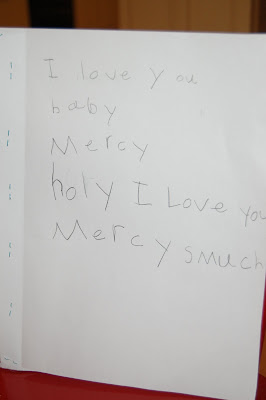 I love you
baby
Mercy
holy I Love you
Mercy smuch